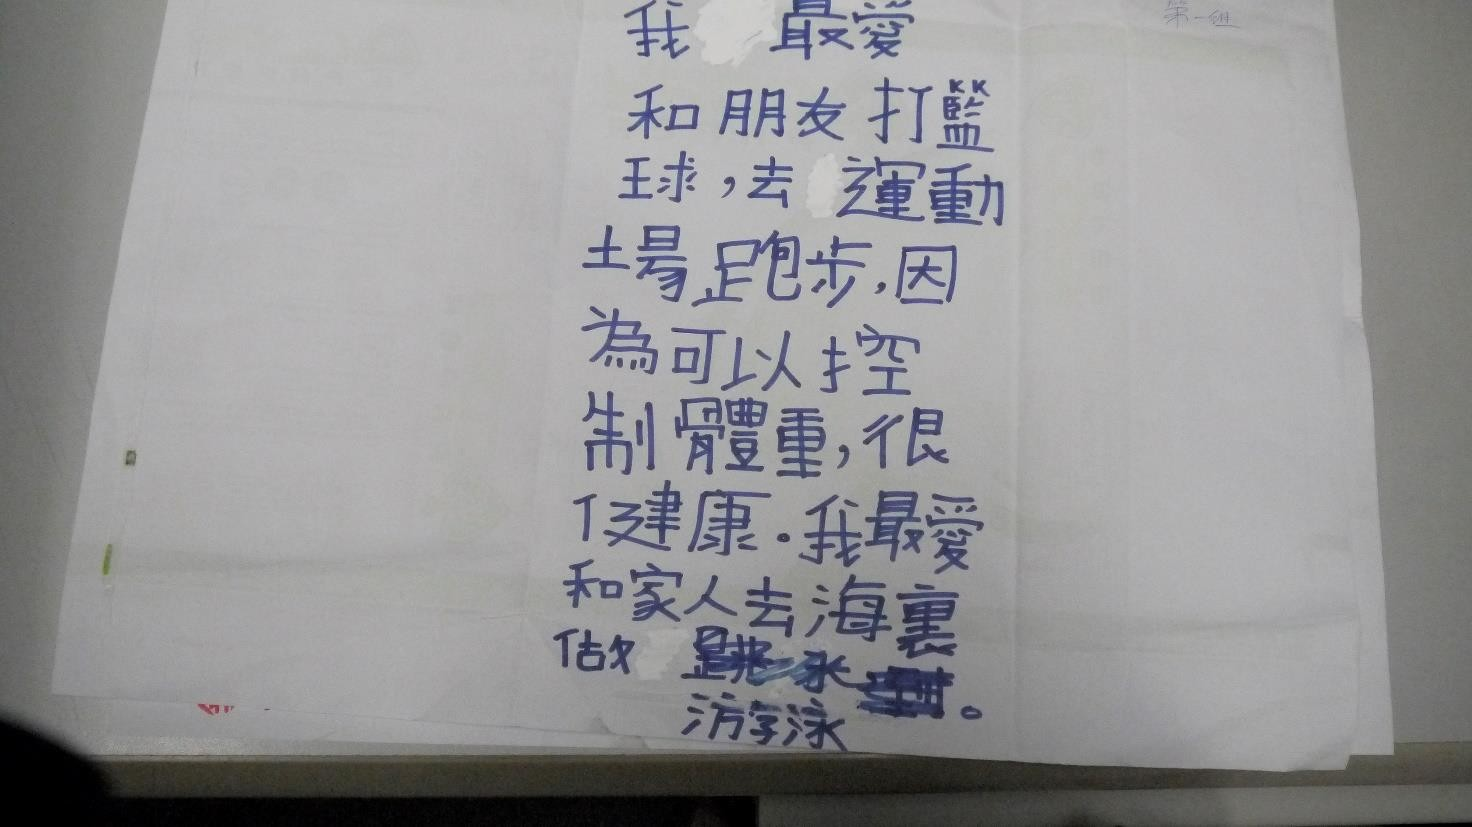 第一組
我 最愛
和朋友打籃
球，去 運動
場跑步，因
為可以控
制體重，很
健康。我最愛
和家人去海裏
做 。
游泳